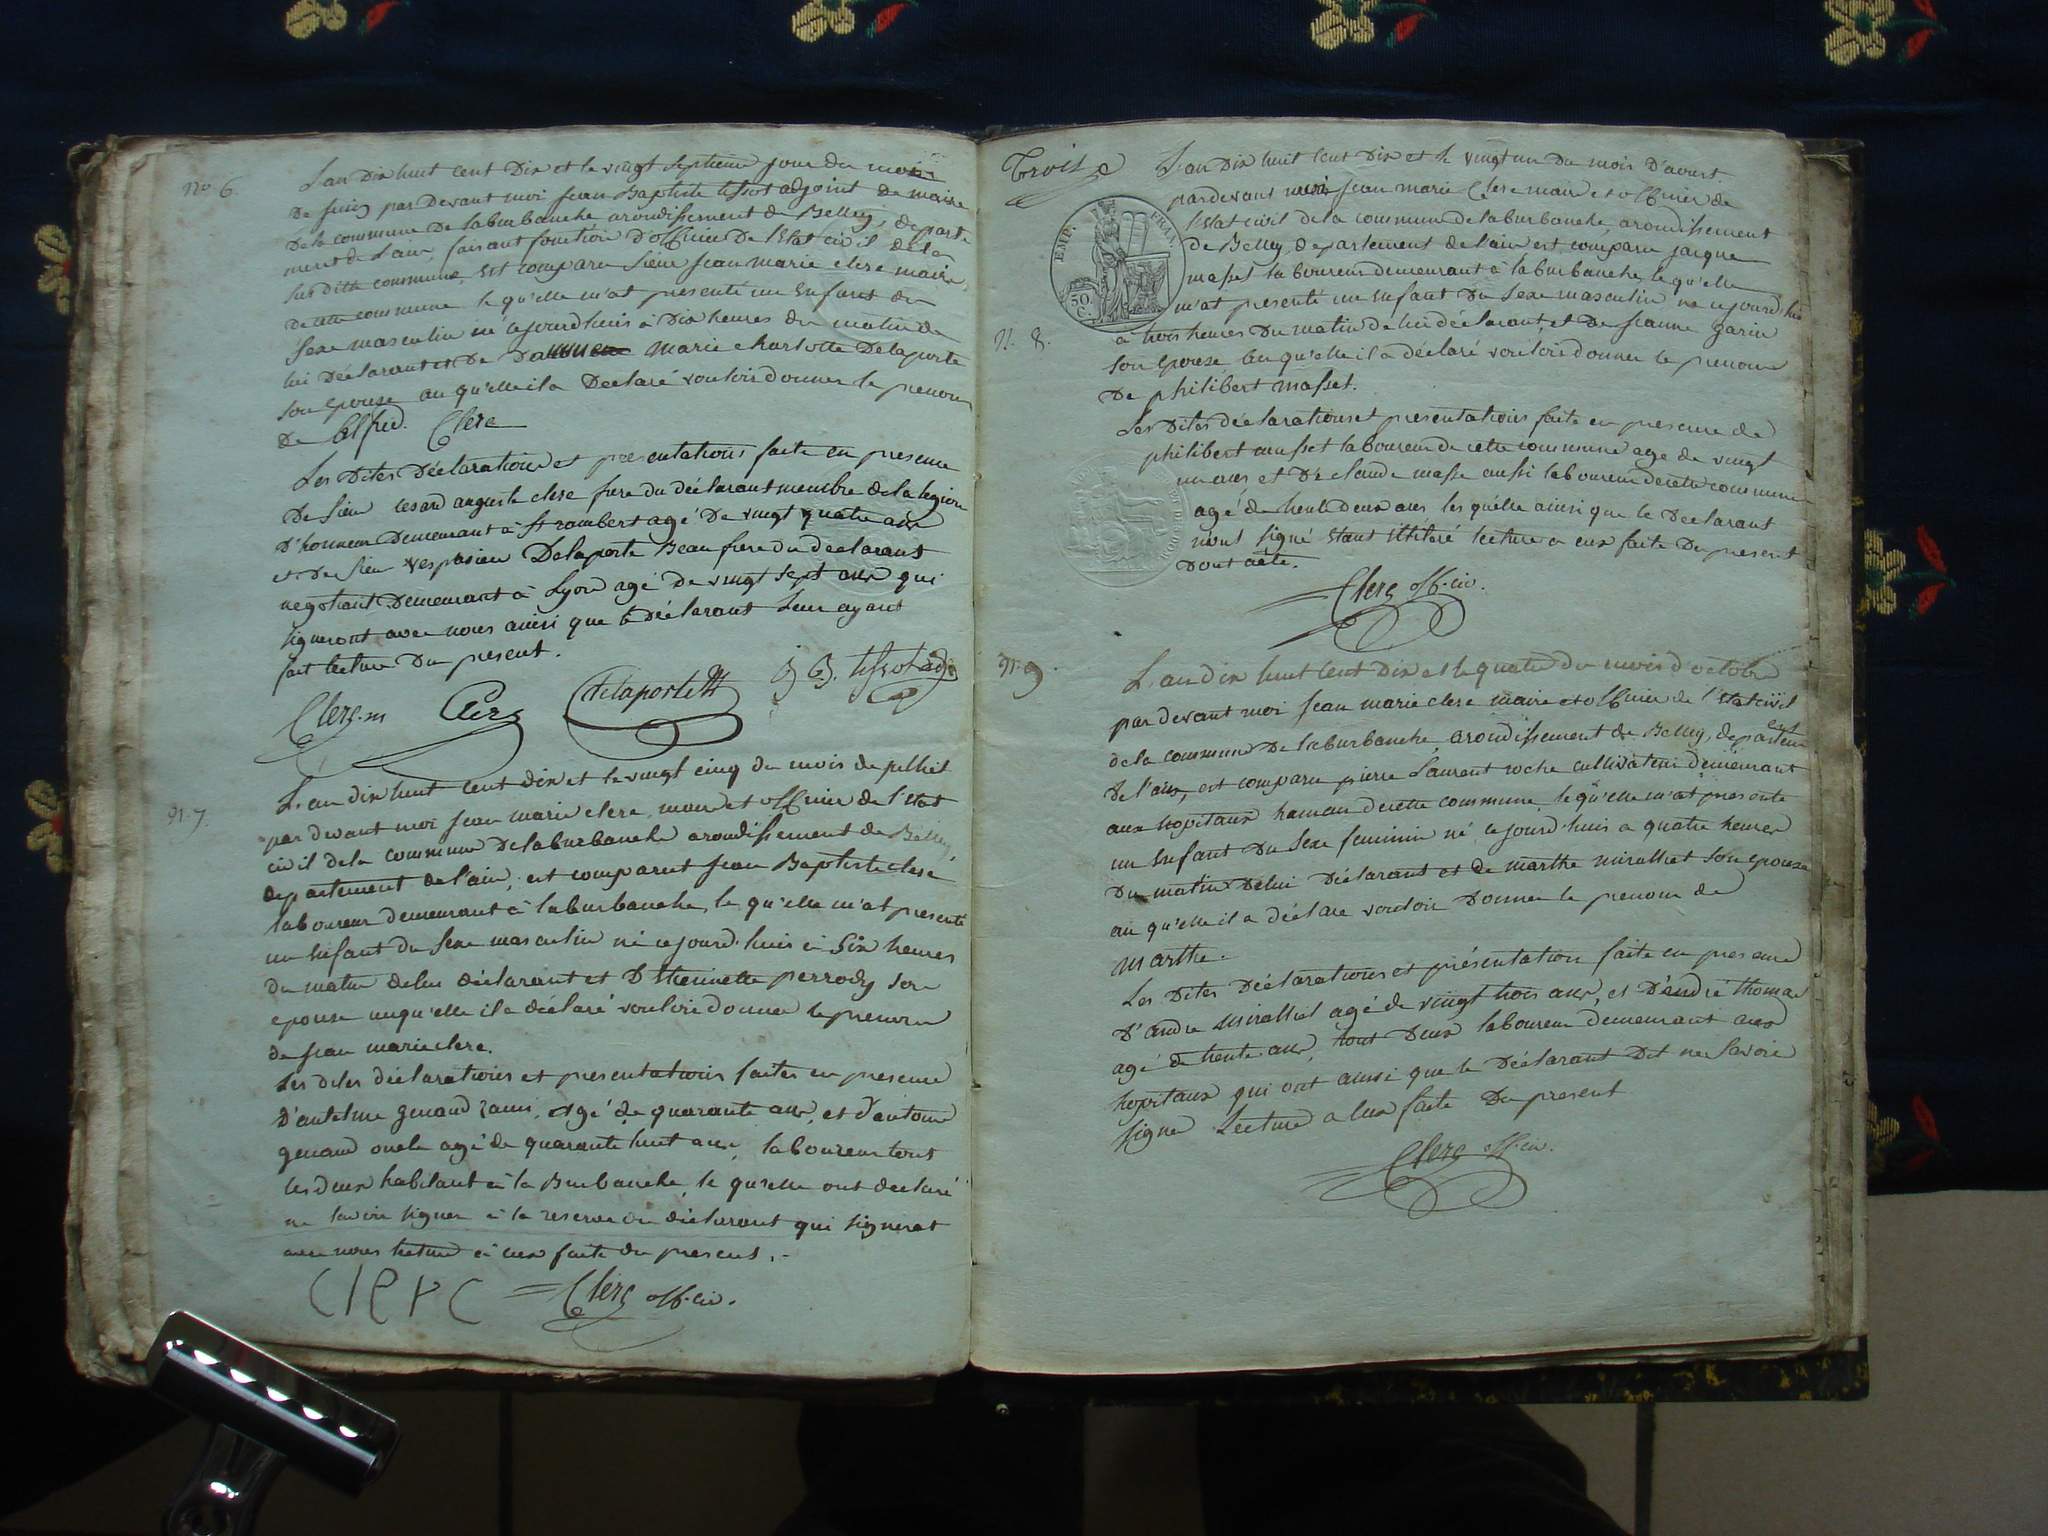 n° 6.
L'an dix huit cent dix et le vingt septieme jour du mois
de juin par devant moi jean Baptiste tissot adjoint de maire
de la commune de laburbanche arondissement de Belley, departe
ment de l'ain, faisant fonction d'officier de l'Etat civil de la
sus ditte commune, est comparu sieur jean marie clerc maire
de cette commune le qu'elle m'at presenté un enfant du
sexe masculin né cejourd'huis à dix heures du matin de
lui déclarant et de marie charlotte Delaporte
son epouse au qu'elle il a declaré vouloir donner le prenom
de alfred. Clerc
Les dites déclarations et presentations faite en presence
de sieur cesard auguste clerc frere du déclarant membre de la legion
d'honneur demeurant à St rambert agé de vingt quatre ans
et de sieur vespasien Delaporte Beau frere du declarant
negotiant demeurant à Lyon agé de vingt sept ans qui
signeront avec nous ainsi que le déclarant leur ayant
fait lecture du present.
Clerc m Clerc delaporte J B. tissot adj
n. 7.
L'an dix huit cent dix et le vingt cinq du mois de juillet
par devant moi jean marie clerc, maire et officier de l'état
civil de la commune de laburbanche arondissement de Belley,
departement de l'ain, est comparut jean Baptiste clerc
laboureur demeurant à laburbanche, le qu'elle m'at presenté
un enfant du sexe masculin né cejourd'huis à six heures
du matin de lui déclarant et d'Etiennette perrody son
epouse au qu'elle il a déclaré vouloir donner le prenom
de jean marie clerc.
Les dites déclarations et presentations faites en presence
d'antelme genaud, agé de quarante ans, et d'antoine
genaud oncle agé de quarante huit ans, laboureur tout
les deux habitant à la Burbanche, le qu'elle ont déclaré
ne savoir signer à la reserve du déclarant qui signerat
avec nous lecture à eux faite du present.
clerc Clerc off. civ.
Trois e
EMP. FRAN.
50. C.
L'an dix huit cent dix et le vingt un du mois d'aoust
pardevant moi jean marie Clerc maire et officier de
l'Etat civil de la commune de laburbanche, arondissement
de Belley, departement de l'ain est comparu jacque
masset laboureur demeurant à laburbanche, le qu'elle
m'at presenté un enfant du sexe masculin né cejourd'hui
n. 8.
a trois heures du matin de lui déclarant, et de jeanne garin
son epouse au qu'elle il a déclaré vouloir donner le prenom
de philibert masset.
Les dites déclarations et presentations faite en presence de
philibert masset laboureur de cette commune age de vingt
un ans et de claude masse aussi laboureur de cette commune
agé de trente deux ans les qu'elle ainsi que le déclarant
n'ont signé etant illiteré lecture a eux faite du present
dont acte.
Clerc off. civ.
n. 9.
L'an dix huit cent dix et le quatre du mois d'octobre
par devant moi jean marie clerc maire et officier de l'Etat civil
de la commune de laburbanche, arondissement de Belley, departement
de l'ain, est comparu pierre Laurent roche cultivateur demeurant
aux hopitaux hameau de cette commune, le qu'elle m'at presenté
un enfant du sexe feminin né cejourd'huis a quatre heures
du matin de lui déclarant et de marthe miralliet son epouse
au qu'elle il a déclare vouloir donner le prenom de
marthe.
Les dites déclarations et présentation faite en presence
d'andre miralliet agé de vingt trois ans, et d'andré thomas
agé de trente ans, tout deux laboureur demeurant aux
hopitaux qui ont ainsi que le déclarant dit ne savoir
signe lecture a eux faite du present
Clerc off. civ.